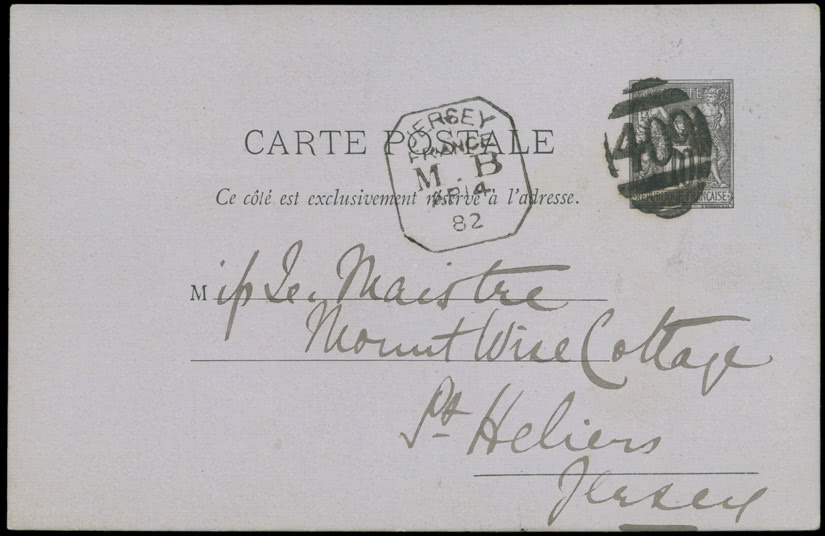 CARTE POSTALE
Ce côté est exclusivement réservé à l'adresse.
JERSEY
FRANCE
M.B
AP 14
82
409
10
FRANÇAISE
Miss Le Maistre
Mount Wise Cottage
St Heliers
Jersey